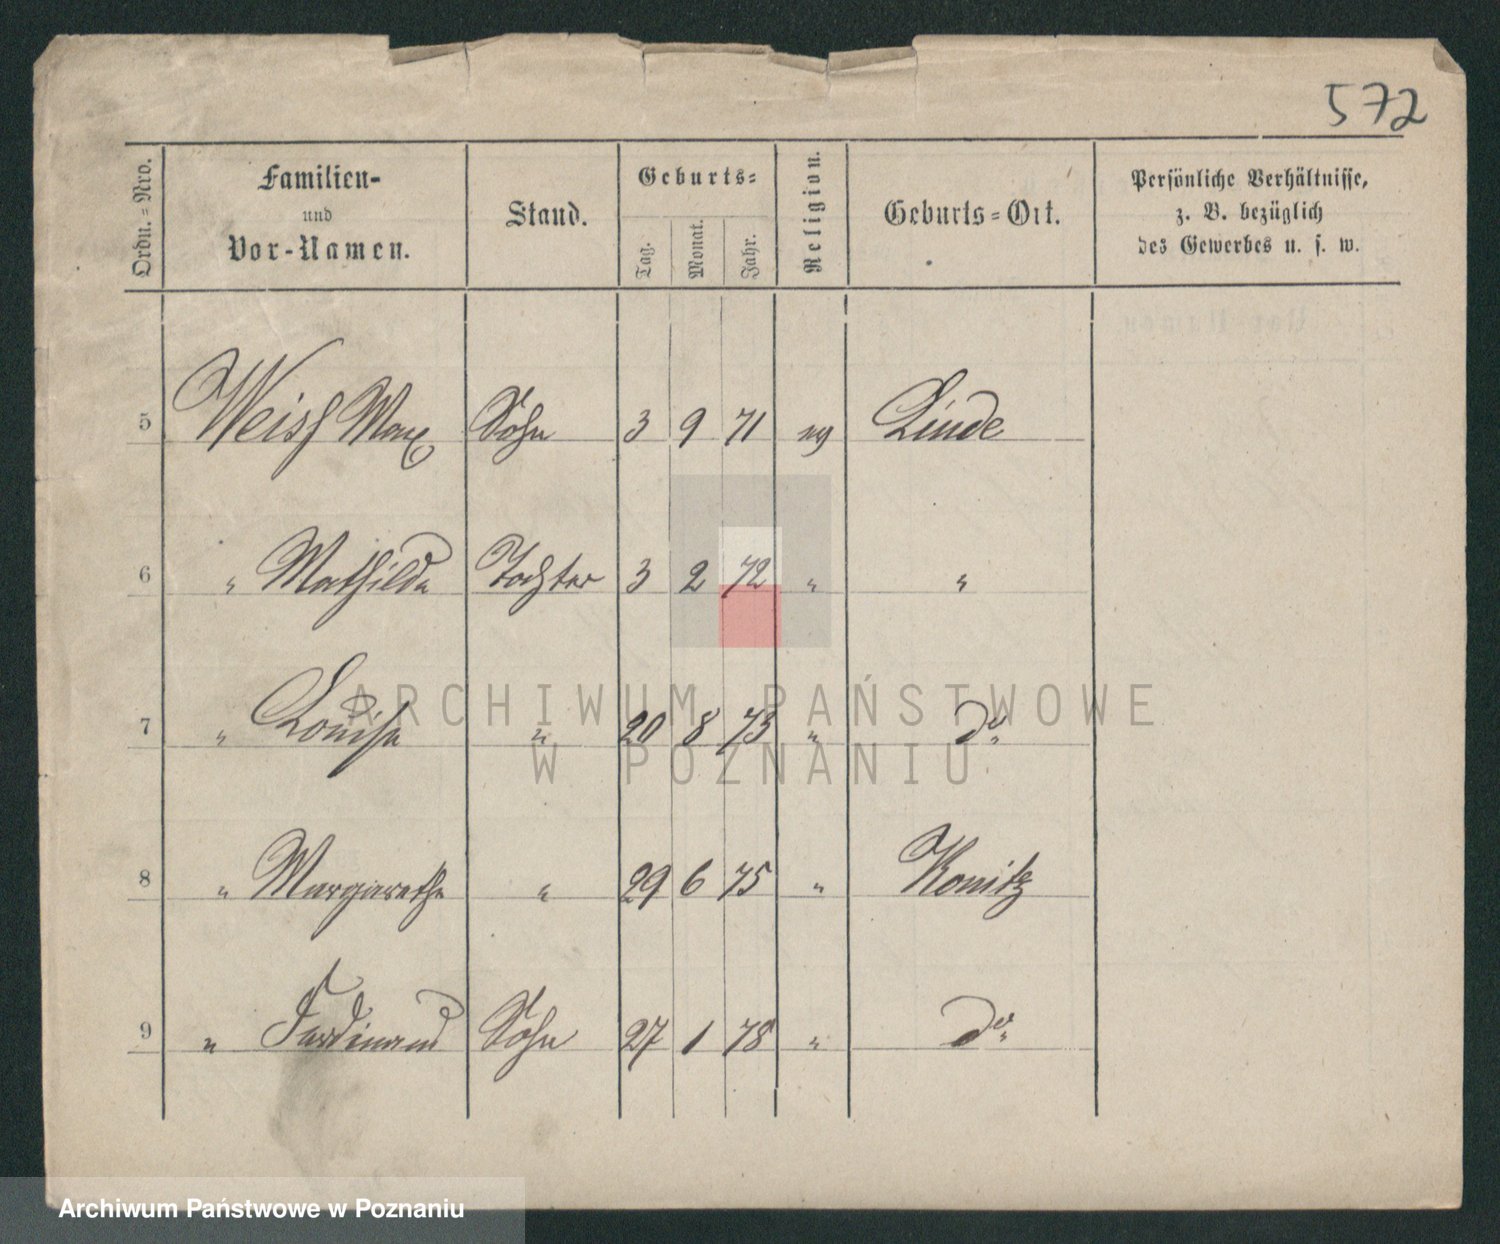 572
Ordn.=Nro. Familien- und Vor-Namen. Stand. Geburts= Tag. Monat. Jahr. Religion. Geburts=Ort. Persönliche Verhältnisse, z. B. bezüglich des Gewerbes u. s. w.
5 Weiss Max Sohn 3 9 71 ev Linde
6 " Mathilde Tochter 3 2 72 " "
7 " Louise " 20 8 73 " do.
8 " Margarethe " 29 6 75 " Konitz
9 " Ferdinand Sohn 27 1 78 " do.
ARCHIWUM PAŃSTWOWE
W POZNANIU
Archiwum Państwowe w Poznaniu